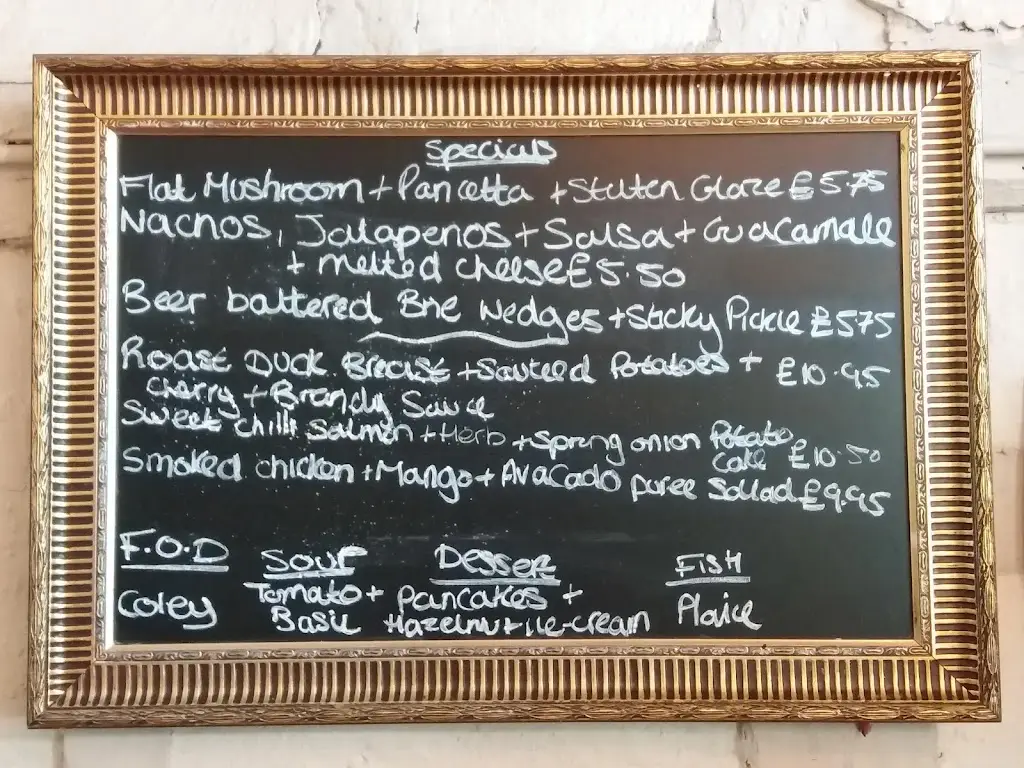 Specials
Flat Mushroom + Pancetta + Stilten Glaze £5.75
Nachos, Jalapenos + Salsa + Guacamale
+ melted cheese £5.50
Beer battered Brie Wedges + Sticky Pickle £5.75
Roast Duck Breast + Sauteed Potatoes + £10.95
Cherry + Brandy Sauce
Sweet chilli Salmon + Herb + Spring onion Potato
Cake £10.50
Smoked chicken + Mango + Avacado puree Sallad £9.95
F.O.D Soup Dessert Fish
Coley Tomato + Pancakes + Plaice
Basil Hazelnut ice-cream